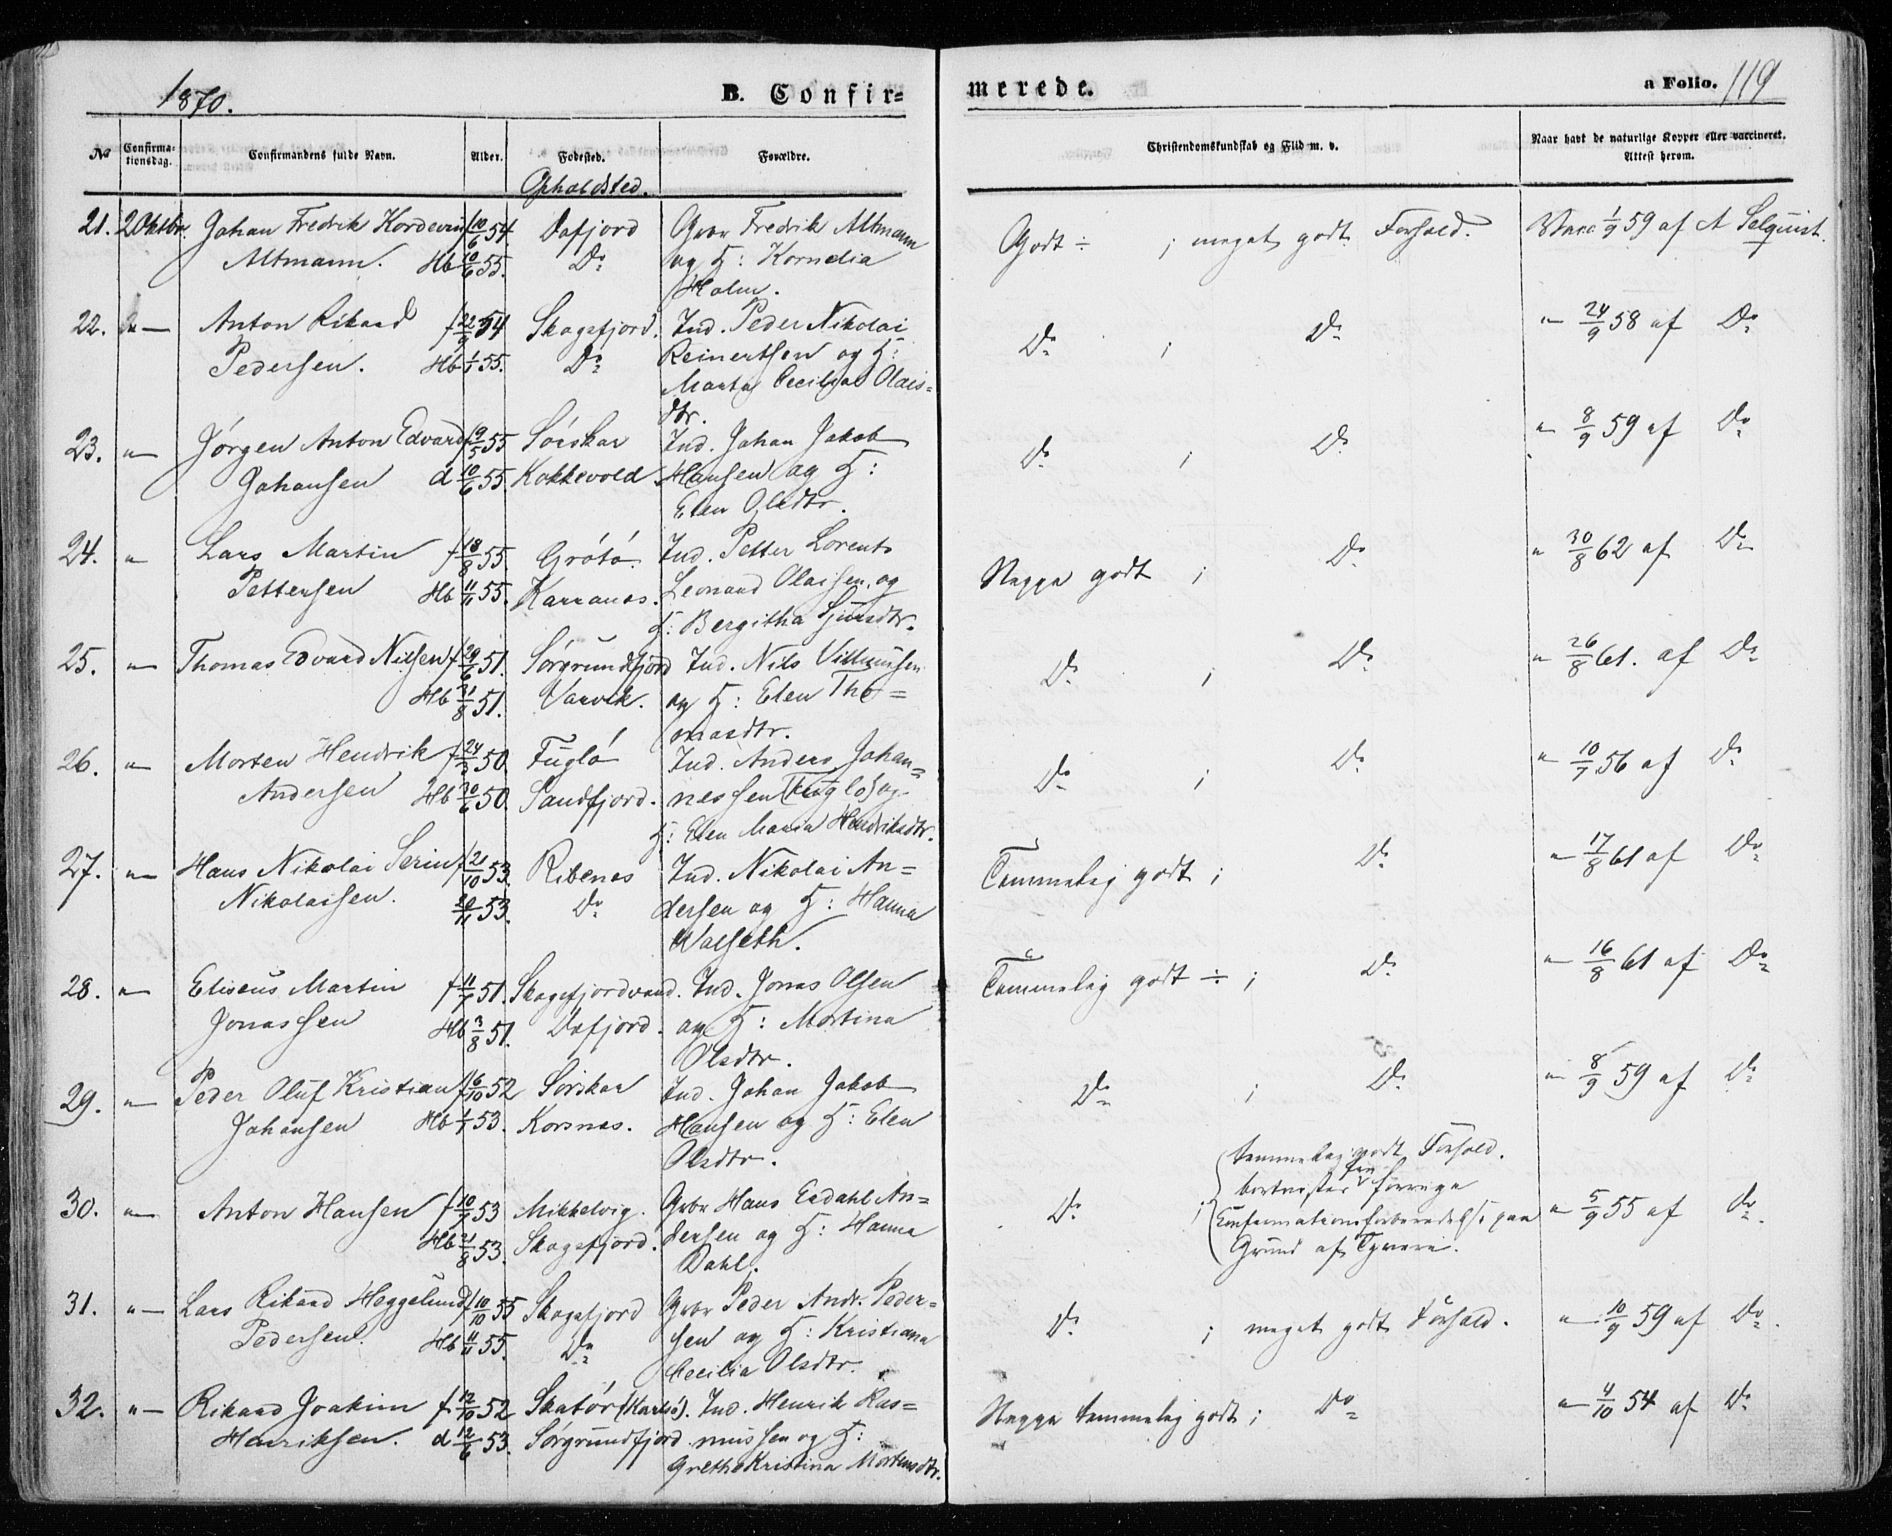 1870.
B. Confir=
merede.
a Folio. 119
No
Confirma-
tionsdag.
Confirmandens fulde Navn.
Alder.
Fødested.
Opholdsted.
Forældre.
Christendomskundskab og Flid m. v.
Naar havt de naturlige Kopper eller vaccineret.
Attest herom.
21. 2 Oktbr. Johan Fredrik f 10/6 54 Dafjord Gbr Fredrik Altmann Godt ÷ ; meget godt Forhold. Vacc 1/9 59 af A Selquist.
Altmann. Hb 10/6 55. Do og H: Kornelia
Holm.
22. " — Anton Rikard f 22/9 54 Skogsfjord. Ind. Peder Nikolai Do ; Do " 24/9 58 af Do
Pedersen. Hb 1/1 55. Do Reinertsen og H:
Marta Cecilia Olais=
dtr.
23. " Jørgen Anton Edvard f 9/5 55 Sørskar Ind. Johan Jakob Do ; Do " 8/9 59 af Do
Johansen d 10/6 55. Kokkevold. Hansen og H:
Elen Olsdtr.
24. " Lars Martin f 18/8 55. Grøtø. Ind. Petter Lorents Neppe godt ; Do " 30/8 62 af Do
Pettersen Hb 11/11 55. Karanes. Leonard Olaisen og
H: Bergitha Sjursdtr.
25. " Thomas Edvard Nilsen f 29/6 51. Sørgrundfjord Ind. Nils Do ; Do " 26/8 61. af Do
Hb 31/8 51. Varvik. og H: Elen Tho=
masdtr.
26. " Morten Hendrik f 24/3 50. Fuglø Ind. Anders Johan= Do ; Do " 10/7 56 af Do
Andersen Hb 30/6 50. Sandfjord. nessen (Fuglø) og
H: Elen Maria Hendriksdtr.
27. " Hans Nikolai Serin f 21/10 53. Ribenes Ind. Nikolai An= Temmelig godt ; Do " 17/8 61 af Do
Nikolaisen. 20/11 53. Do dersen og H: Hanna
Walseth.
28. " Eliseus Martin f 11/7 51. Skogsfjordvand. Ind. Jonas Olsen Temmelig godt ÷ ; Do " 16/8 61 af Do
Jonassen Hb 3/8 51. Dafjord. og H: Martina
Olsdtr.
29. " Peder Oluf Kristian f 6/10 52 Sørskar Ind. Johan Jakob Do ; Do " 8/9 59 af Do
Johansen Hb 1/1 53. Korsnes. Hansen og H: Elen
Olsdtr.
30. " Anton Hansen f 10/7 53 Mikkelvig. Gbr Hans Esdahl An= Do ; temmelig godt Forhold. " 5/9 55 af Do
Hb 21/8 53. Skogsfjord. dersen og H: Hanna bortvister fra forrige
Dahl. Confirmationsforberedelse paa
Grund af Tyveri.
31. " Lars Rikard Heggelund f 10/10 55 Skogsfjord Gbr Peder Andr. Peder= Do ; meget godt Forhold. " 10/9 59 af Do.
Pedersen. Hb 11/11 55. Do sen og H: Kristiana
Cecilia Olsdtr.
32. " Rikard Joakim f 12/10 52 Skatør (Karlsø). Ind. Henrik Ras= Neppe temmelig godt ; Do " 4/10 54 af Do
Henriksen. d 12/6 53. Sørgrundfjord mussen og H:
Grethe Kristina Mortensdtr.